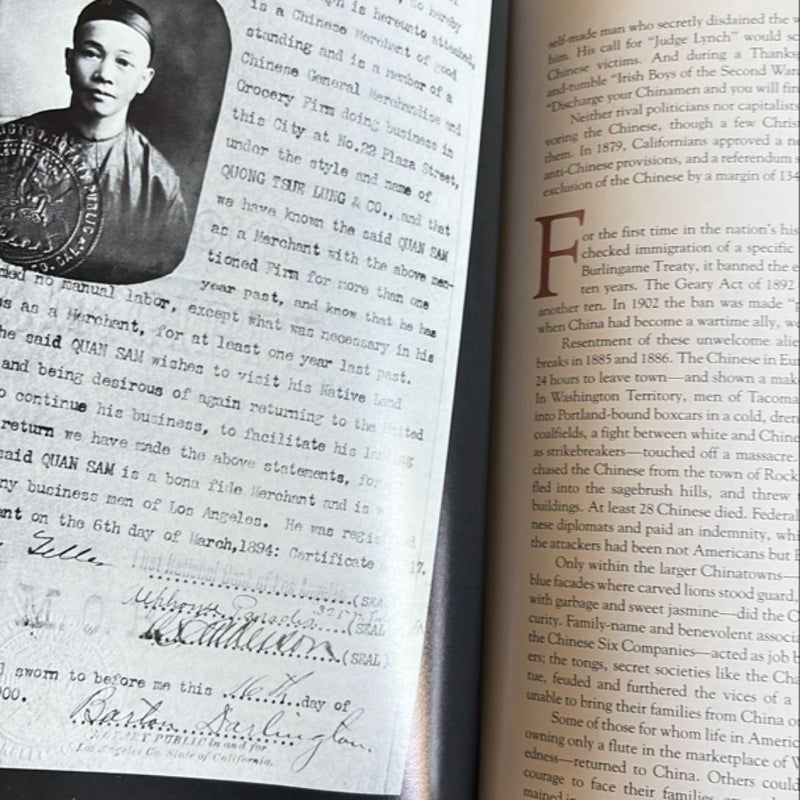 is hereunto attached,
is a Chinese Merchant of good
standing and is a member of a
Chinese General Merchandise and
Grocery Firm doing business in
this City at No.22 Plaza Street,
under the style and name of
QUONG TSUE LUNG & CO., and that
we have known the said QUAN SAM
as a Merchant with the above men-
tioned Firm for more than one
year past, and know that he has
no manual labor, except what was necessary in his
as a Merchant, for at least one year last past.
he said QUAN SAM wishes to visit his Native Land
and being desirous of again returning to the United
continue his business, to facilitate his
return we have made the above statements, for
said QUAN SAM is a bona fide Merchant and is
ny business men of Los Angeles. He was
on the 6th day of March,1894: Certificate 17.
First National Bank of Los Angeles
(SEAL)
(SEAL)
sworn to before me this 16th day of
900.
Barton Darlington.
NOTARY PUBLIC in and for
Los Angeles Co. State of California.
self-made man who secretly disdained the
him. His call for “Judge Lynch” would
Chinese victims. And during a
and-tumble “Irish Boys of the Second
“Discharge your Chinamen and you will
Neither rival politicians nor capitalists
voring the Chinese, though a few
them. In 1879, Californians approved a
anti-Chinese provisions, and a referendum
exclusion of the Chinese by a margin of 134
For the first time in the nation’s his
checked immigration of a specific
Burlingame Treaty, it banned the
ten years. The Geary Act of 1892
another ten. In 1902 the ban was made
when China had become a wartime ally,
Resentment of these unwelcome
breaks in 1885 and 1886. The Chinese in
24 hours to leave town—and shown a
In Washington Territory, men of Tacoma
into Portland-bound boxcars in a cold,
coalfields, a fight between white and
as strikebreakers—touched off a massacre.
chased the Chinese from the town of Rock
fled into the sagebrush hills, and threw
buildings. At least 28 Chinese died. Federal
nese diplomats and paid an indemnity,
the attackers had been not Americans but
Only within the larger Chinatowns—
blue facades where carved lions stood guard,
with garbage and sweet jasmine—did the
curity. Family-name and benevolent
the Chinese Six Companies—acted as job
ers; the tongs, secret societies like the
tue, feuded and furthered the vices of a
unable to bring their families from China
Some of those for whom life in
owning only a flute in the marketplace of
edness—returned to China. Others could
courage to face their families.
mained